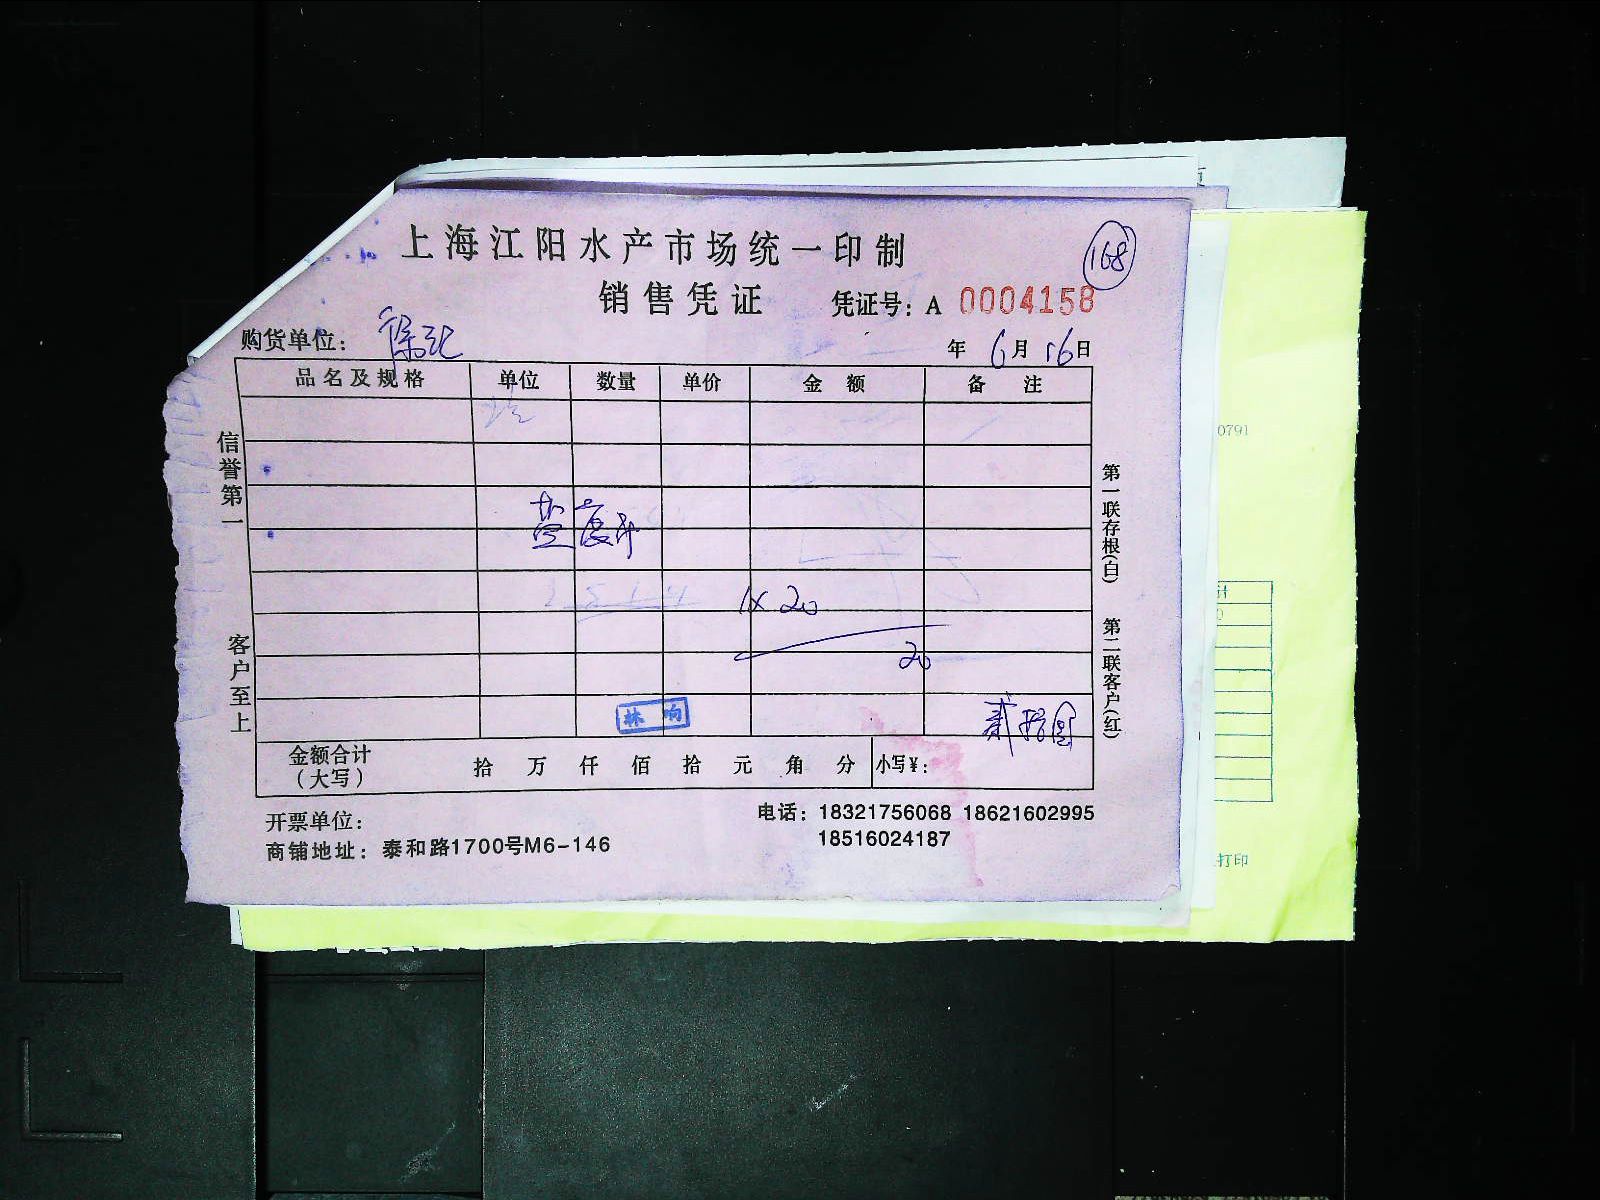 上海江阳水产市场统一印制
168
销售凭证 凭证号：A 0004158
购货单位： 徐记 年 6月16日
品名及规格 单位 数量 单价 金额 备注
信誉第一
客户至上
1X 20
20
林 响
贰拾圆
金额合计（大写） 拾 万 仟 佰 拾 元 角 分 小写￥：
第一联存根（白）
第二联客户（红）
开票单位：
电话：18321756068 18621602995
18516024187
商铺地址：泰和路1700号M6-146
0791
计
打印